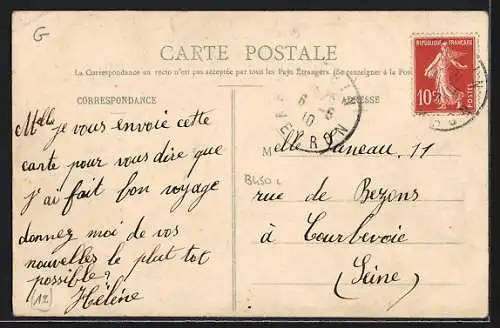 G
CARTE POSTALE
La Correspondance au recto n'est pas acceptée par tous les Pays Étrangers. (Se renseigner à la Pos
CORRESPONDANCE
ADRESSE
REPUBLIQUE FRANÇAISE
10c
POSTES
6
10
Melle je vous envoie cette
carte pour vous dire que
j'ai fait bon voyage
donnez moi de vos
nouvelles le plut tot
possible?
Hélène
12
Melle Janeau, 11
B450
rue de Bezons
à Courbevoie
(Seine)